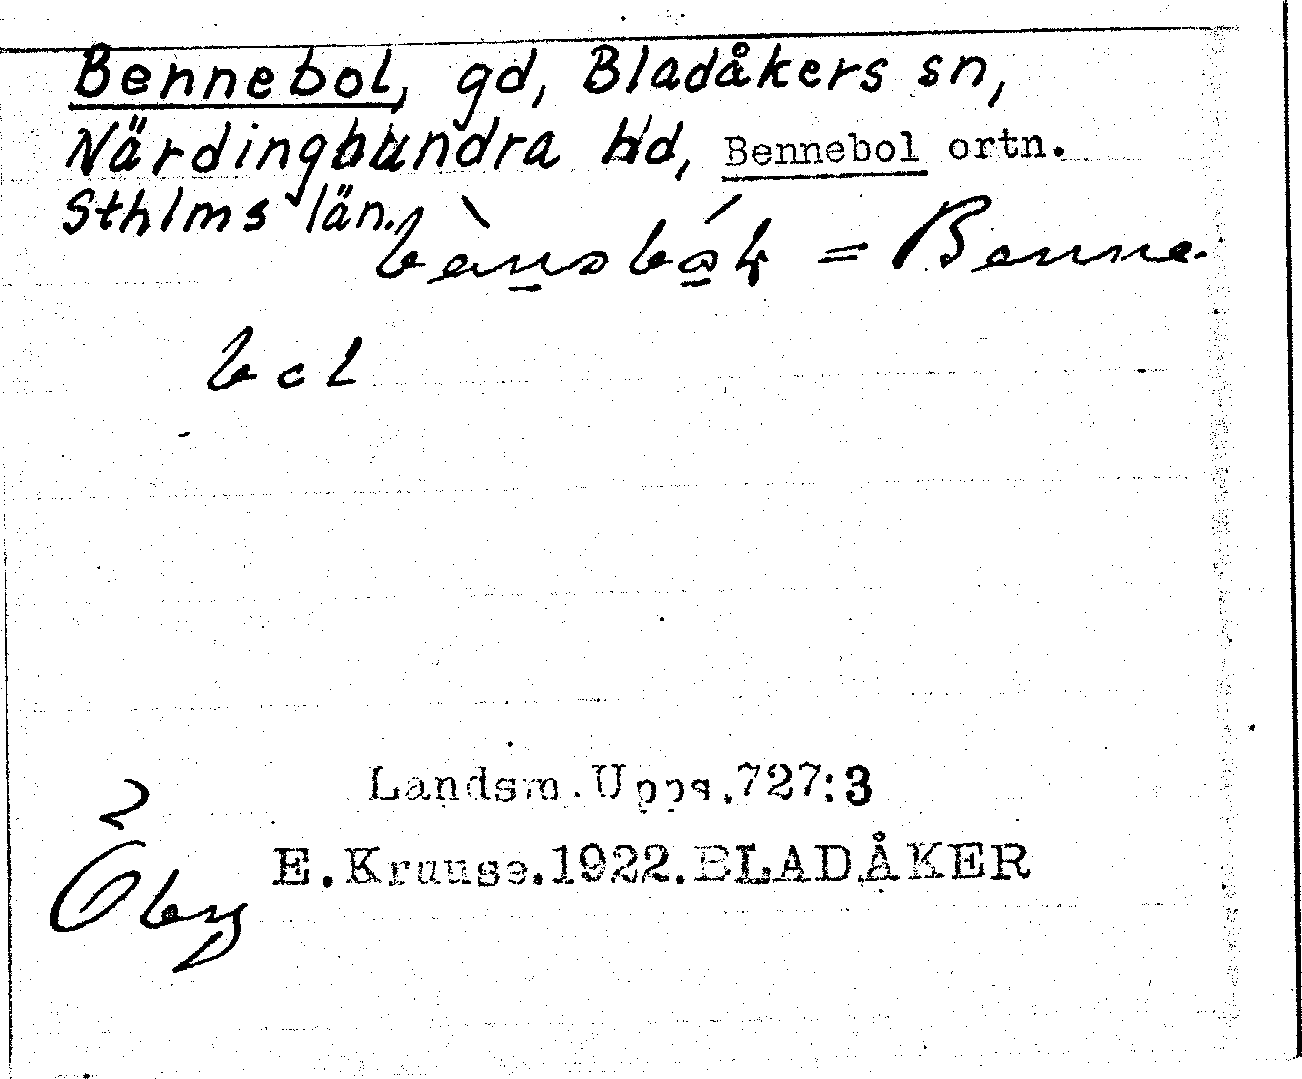 Bennebol, gd, Bladåkers sn,
Närdinghundra hd, Bennebol ortn.
Sthlms län.
= Benne-
bol
Landsm. Upps. 727:3
E. Krause. 1922. BLADÅKER